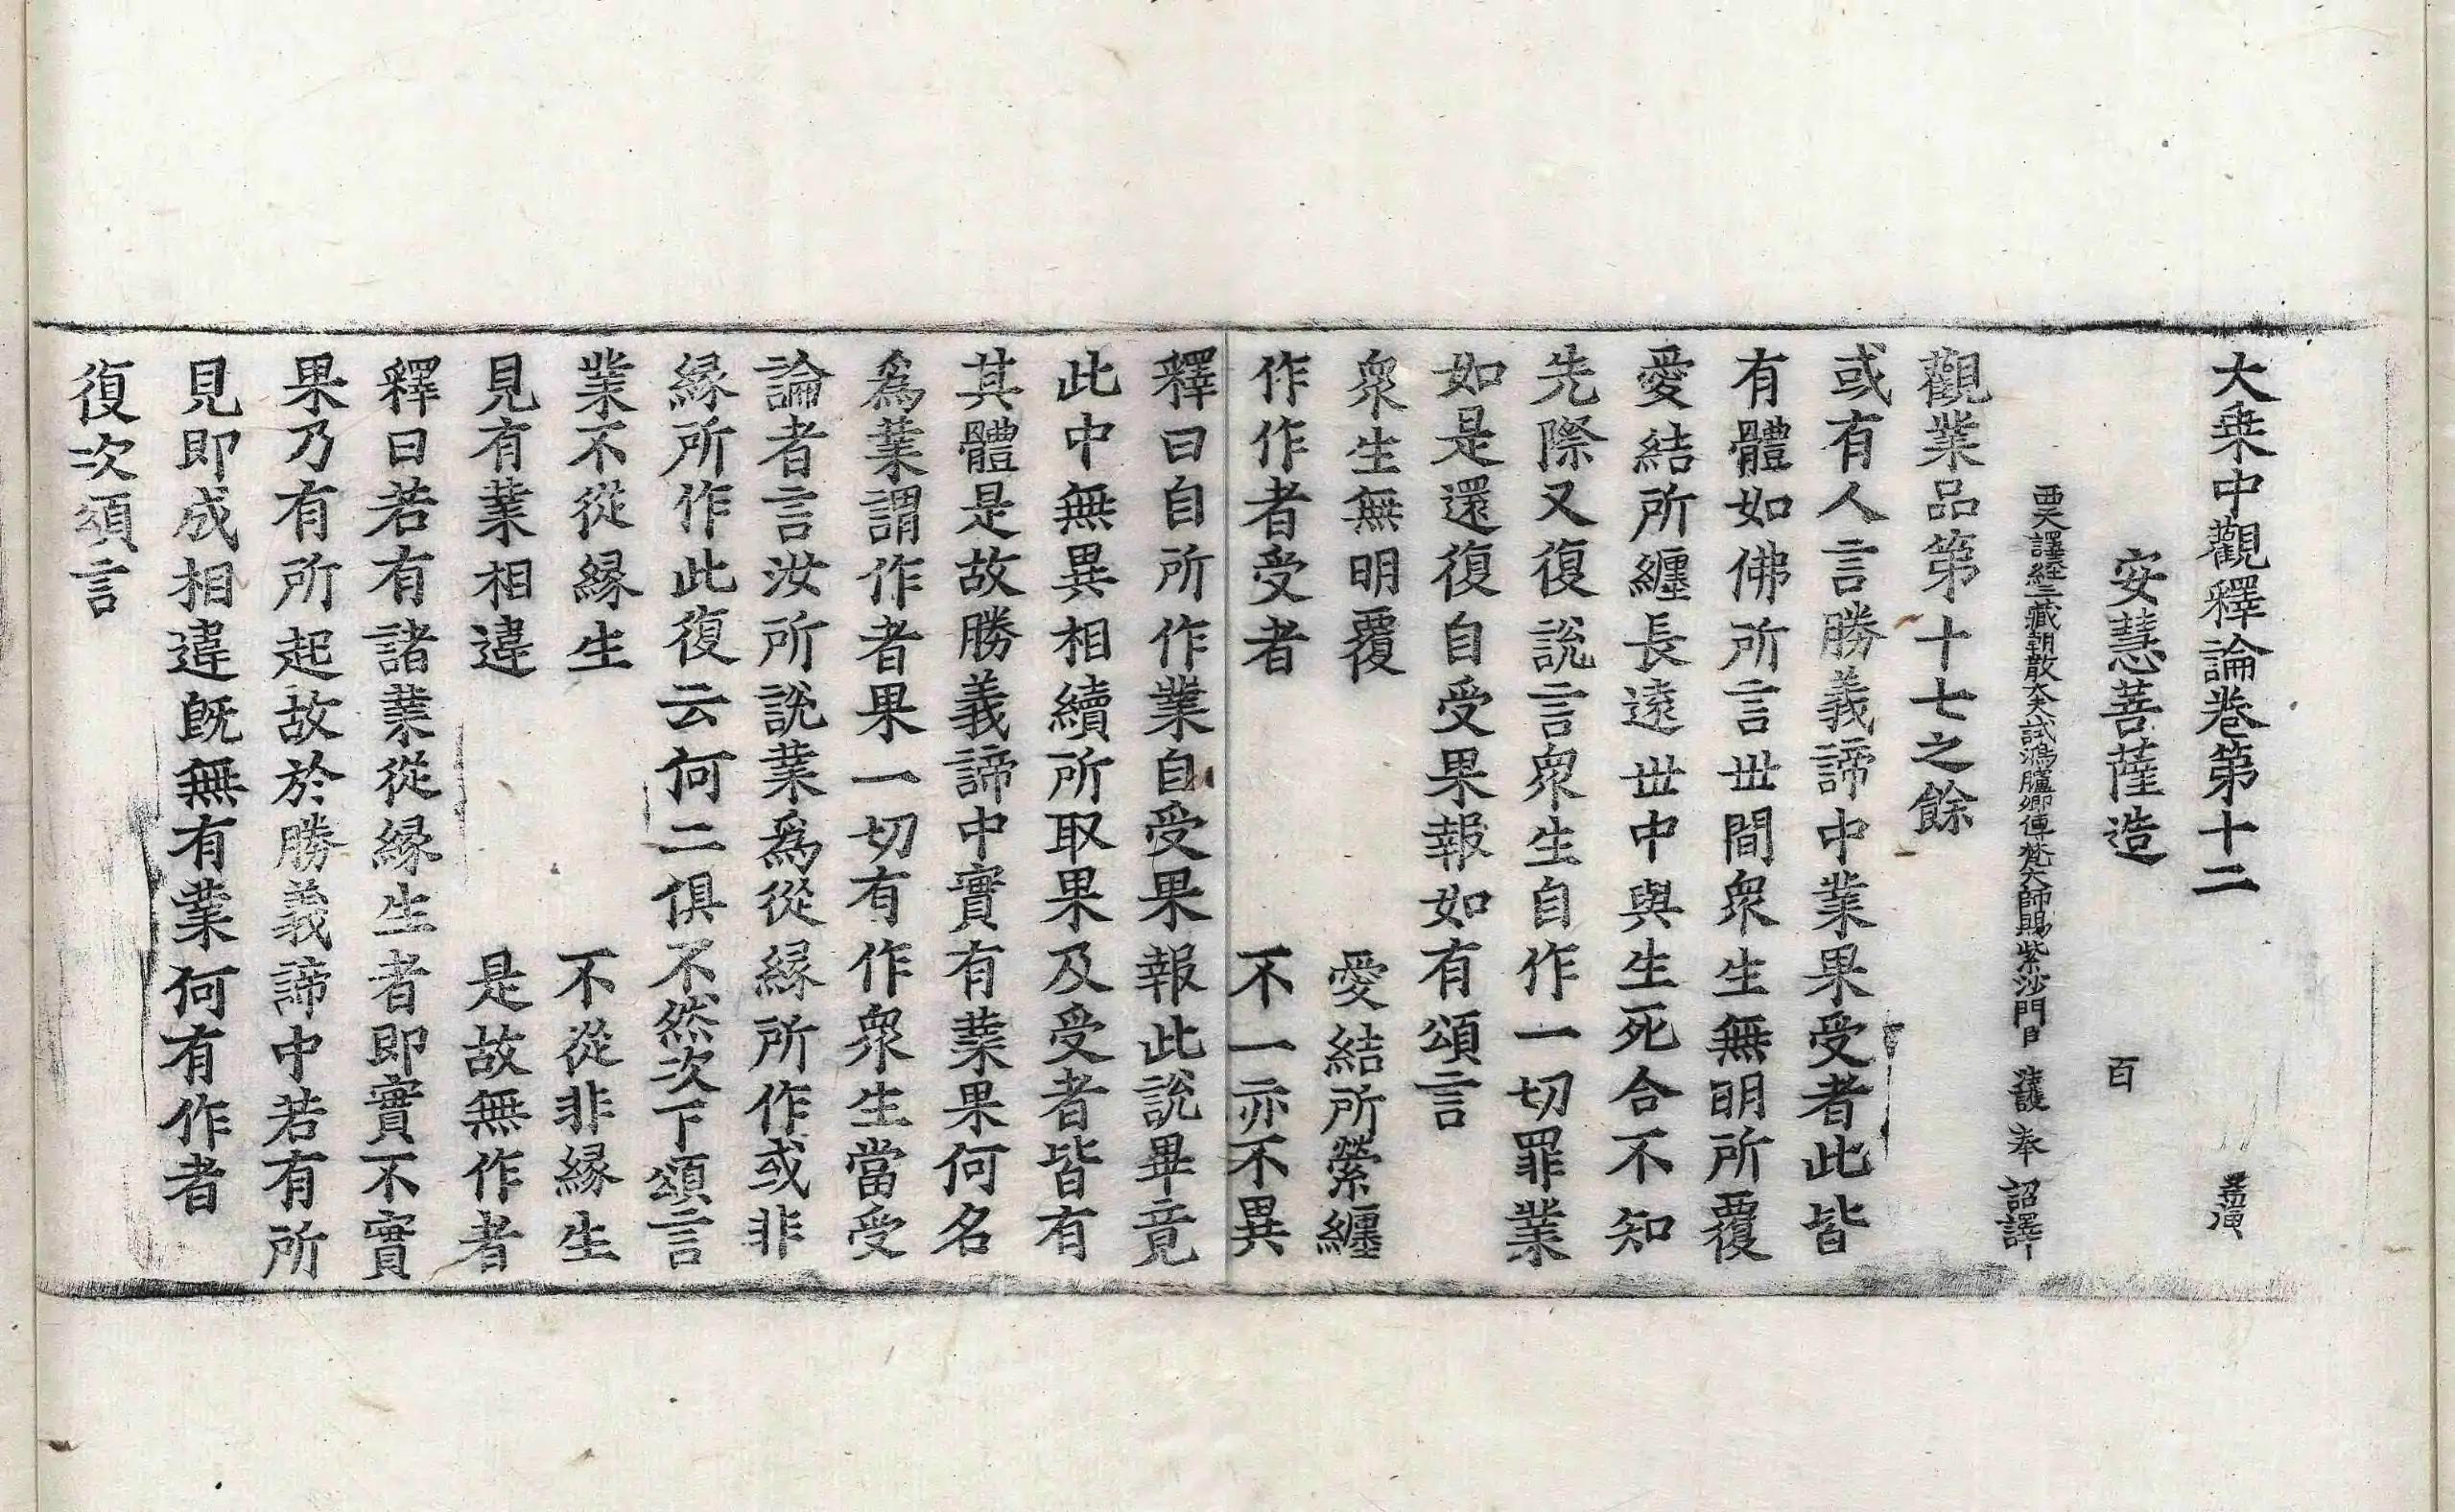 大乗中觀釋論卷第十二
安慧菩薩造 百
西天譯經三藏朝散大夫試鴻臚卿傳梵大師賜紫沙門臣 法護 奉 詔譯
觀業品第十七之餘
或有人言勝義諦中業果受者此皆
有體如佛所言丗間衆生無明所覆
愛結所纏長遠丗中與生死合不知
先際又復說言衆生自作一切罪業
如是還復自受果報如有頌言
衆生無明覆 愛結所縈纏
作作者受者 不一亦不異
釋曰自所作業自受果報此說畢竟
此中無異相續所取果及受者皆有
其體是故勝義諦中實有業果何名
爲業謂作者果一切有作衆生當受
論者言汝所說業爲從緣所作或非
緣所作此復云何二俱不然次下頌言
業不從緣生 不從非緣生
見有業相違 是故無作者
釋曰若有諸業從緣生者即實不實
果乃有所起故於勝義諦中若有所
見即成相違旣無有業何有作者
復次頌言